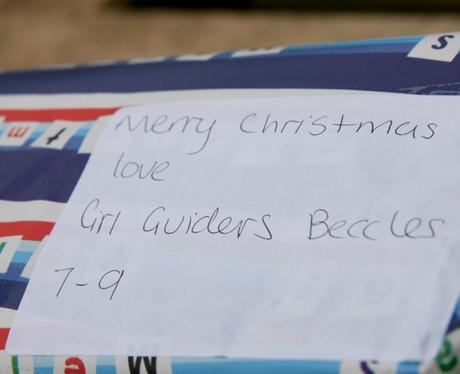 Merry Christmas
love
Girl Guiders Beccles
7-9